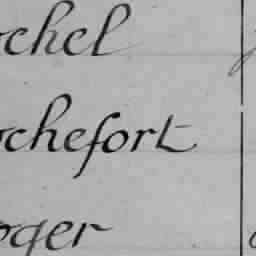 ochel
ochefort
oger